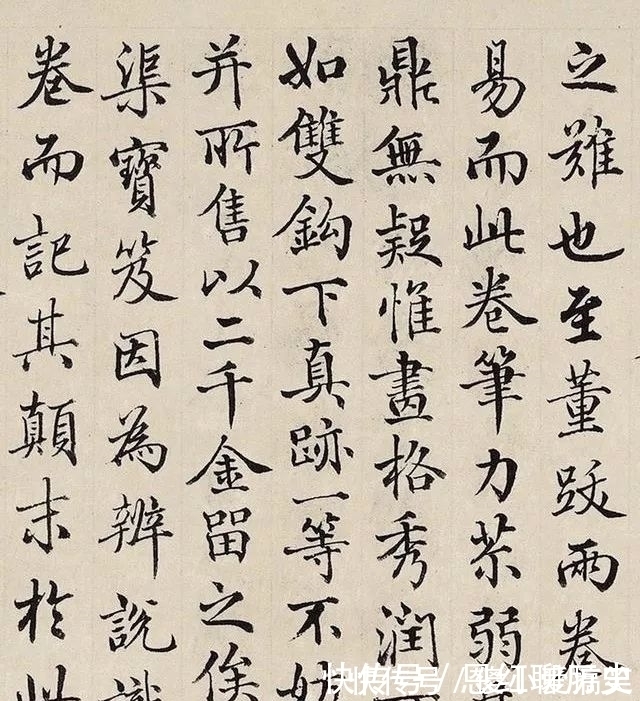 之難也至董跋兩卷
易而此卷筆力苶弱
鼎無疑惟畫格秀潤
如雙鈎下真跡一等不妨
并所售以二千金留之俟
渠寶笈因為辨說識
卷而記其顛末於此
快传号/